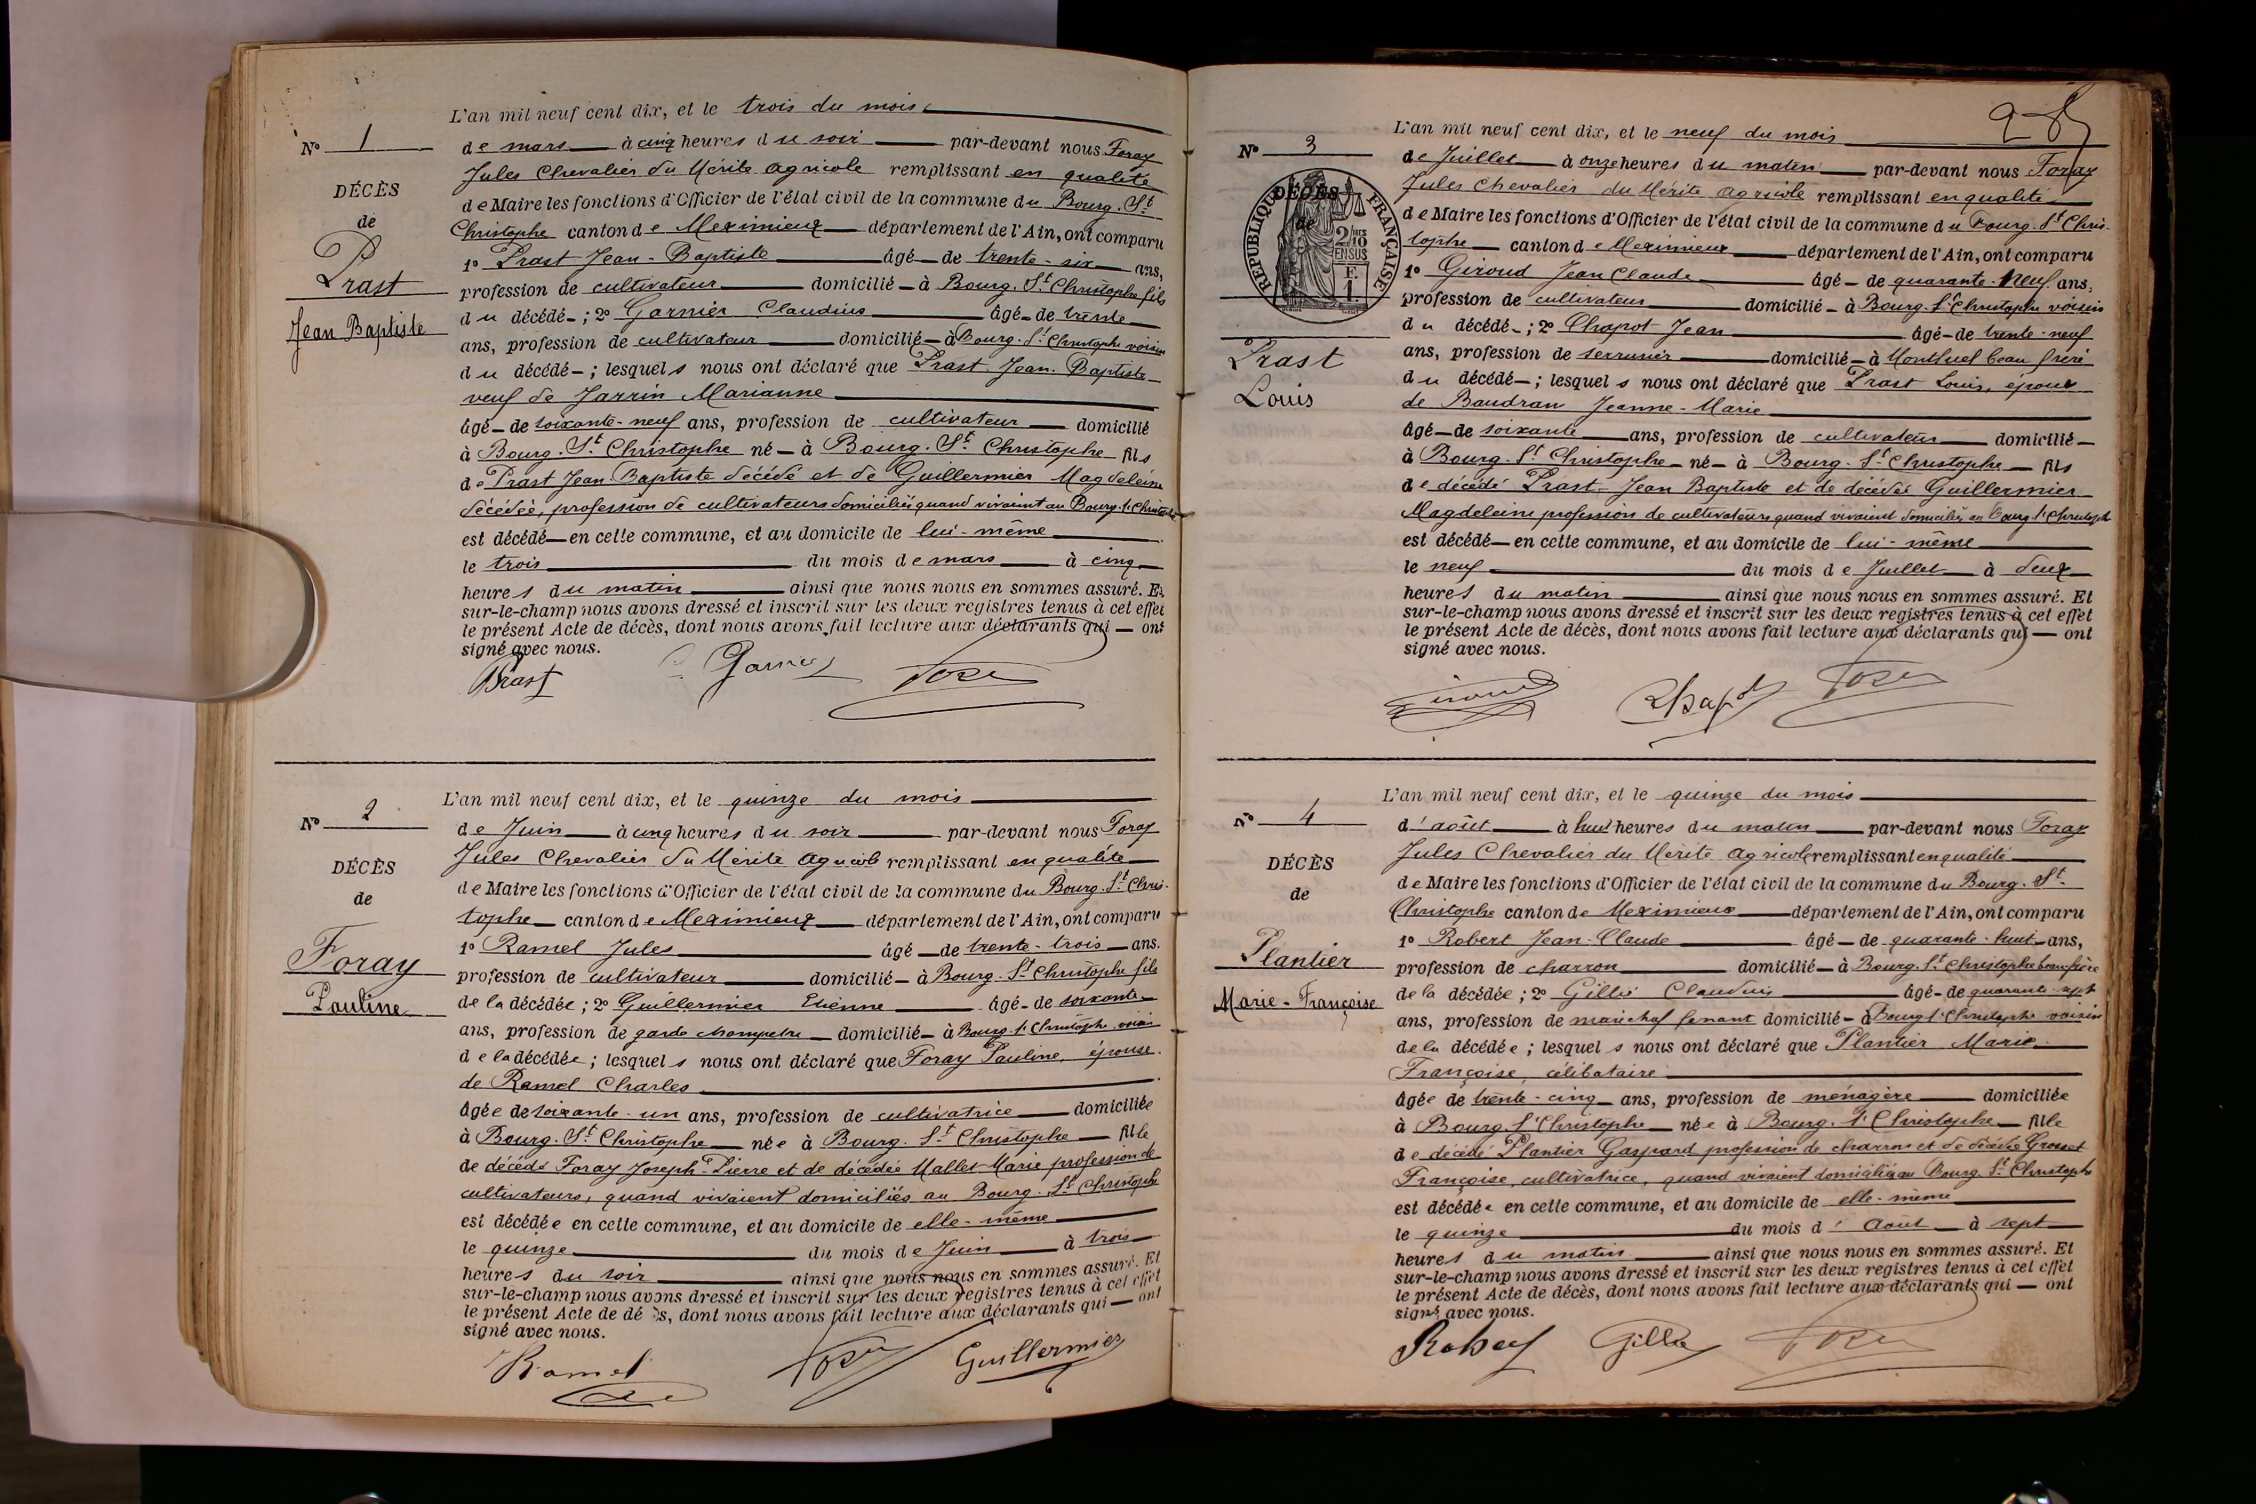 L'an mil neuf cent dix, et le trois du mois
No 1
de mars à cinq heures du soir par-devant nous Foray
Jules Chevalier du Mérite agricole remplissant en qualité
DÉCÈS
de Maire les fonctions d'Officier de l'état civil de la commune du Bourg. St.
de
Christophe canton de Meximieux département de l'Ain, ont comparu
Prast
1o Prast Jean-Baptiste âgé de trente-six ans,
profession de cultivateur domicilié à Bourg. St. Christophe fils
Jean Baptiste
du décédé ; 2o Garnier Claudius âgé de trente
ans, profession de cultivateur domicilié à Bourg. St. Christophe voisin
du décédé ; lesquels nous ont déclaré que Prast Jean-Baptiste
veuf de Jarrin Marianne
âgé de soixante-neuf ans, profession de cultivateur domicilié
à Bourg. St. Christophe né à Bourg. St. Christophe fils
de Prast Jean Baptiste décédé et de Guillermier Magdeleine
décédée, profession de cultivateurs domiciliés quand vivaient au Bourg. St. Christophe
est décédé en cette commune, et au domicile de lui-même
le trois du mois de mars à cinq
heures du matin ainsi que nous nous en sommes assuré. Et
sur-le-champ nous avons dressé et inscrit sur les deux registres tenus à cet effet
le présent Acte de décès, dont nous avons fait lecture aux déclarants qui ont
signé avec nous.
Prast Garnier Foray
L'an mil neuf cent dix, et le quinze du mois
No 2
de Juin à cinq heures du soir par-devant nous Foray
Jules Chevalier du Mérite agricole remplissant en qualité
DÉCÈS
de Maire les fonctions d'Officier de l'état civil de la commune du Bourg. St. Chris-
de
tophe canton de Meximieux département de l'Ain, ont comparu
Foray
1o Ramel Jules âgé de trente-trois ans.
profession de cultivateur domicilié à Bourg. St. Christophe fils
Pauline
de la décédée ; 2o Guillermier Etienne âgé de soixante
ans, profession de garde champetre domicilié à Bourg. St. Christophe voisin
de la décédée ; lesquels nous ont déclaré que Foray Pauline, épouse
de Ramel Charles
âgée de soixante-un ans, profession de cultivatrice domiciliée
à Bourg. St. Christophe née à Bourg. St. Christophe fille
de décédé Foray Joseph-Pierre et de décédée Mallet Marie profession de
cultivateurs, quand vivaient domiciliés au Bourg. St. Christophe
est décédée en cette commune, et au domicile de elle-même
le quinze du mois de Juin à trois
heures du soir ainsi que nous nous en sommes assuré. Et
sur-le-champ nous avons dressé et inscrit sur les deux registres tenus à cet effet
le présent Acte de dé ès, dont nous avons fait lecture aux déclarants qui ont
signé avec nous.
Ramel Foray Guillermier
285
L'an mil neuf cent dix, et le neuf du mois
No 3
de Juillet à onze heures du matin par-devant nous Foray
Jules Chevalier du Mérite agricole remplissant en qualité
DÉCÈS
de
REPUBLIQUE FRANÇAISE
2/10 EN SUS
de Maire les fonctions d'Officier de l'état civil de la commune du Bourg. St. Chris-
tophe canton de Meximieux département de l'Ain, ont comparu
1o Giroud Jean Claude âgé de quarante-neuf ans,
profession de cultivateur domicilié à Bourg. St. Christophe voisin
du décédé ; 2o Chapot Jean âgé de trente-neuf
Prast
ans, profession de serrurier domicilié à Montluel beau frère
Louis
du décédé ; lesquels nous ont déclaré que Prast Louis, époux
de Baudran Jeanne-Marie
âgé de soixante ans, profession de cultivateur domicilié
à Bourg. St. Christophe né à Bourg. St. Christophe fils
de décédé Prast Jean Baptiste et de décédée Guillermier
Magdeleine profession de cultivateurs quand vivaient domiciliés au Bourg. St. Christophe
est décédé en cette commune, et au domicile de lui-même
le neuf du mois de Juillet à deux
heures du matin ainsi que nous nous en sommes assuré. Et
sur-le-champ nous avons dressé et inscrit sur les deux registres tenus à cet effet
le présent Acte de décès, dont nous avons fait lecture aux déclarants qui ont
signé avec nous.
Giroud Chapot Foray
L'an mil neuf cent dix, et le quinze du mois
No 4
d'août à huit heures du matin par-devant nous Foray
Jules Chevalier du Mérite agricole remplissant en qualité
DÉCÈS
de Maire les fonctions d'Officier de l'état civil de la commune du Bourg. St.
de
Christophe canton de Meximieux département de l'Ain, ont comparu
Plantier
1o Robert Jean-Claude âgé de quarante-huit ans,
profession de charron domicilié à Bourg. St. Christophe beau frère
Marie-Françoise
de la décédée ; 2o Gillis Claudius âgé de quarante-sept
ans, profession de maréchal ferrant domicilié à Bourg St. Christophe voisin
de la décédée ; lesquels nous ont déclaré que Plantier Marie
Françoise, célibataire
âgée de trente-cinq ans, profession de ménagère domiciliée
à Bourg. St. Christophe née à Bourg. St. Christophe fille
de décédé Plantier Gaspard profession de charron et de décédée Grosset
Françoise, cultivatrice, quand vivaient domiciliés au Bourg. St. Christophe
est décédée en cette commune, et au domicile de elle-même
le quinze du mois d'Août à sept
heures du matin ainsi que nous nous en sommes assuré. Et
sur-le-champ nous avons dressé et inscrit sur les deux registres tenus à cet effet
le présent Acte de décès, dont nous avons fait lecture aux déclarants qui ont
signé avec nous.
Robert Gillis Foray